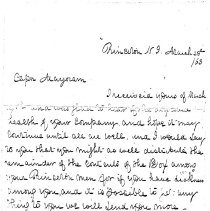 Princeton N.J. March 30th
/63
Capn Mayoram
I received yours of March
and was glad to hear of the improved
health of your Company and hope it may
continue until all are well, and I would say
to you that you might as well distribute the
remainder of the Contents of the Box among
your Princeton Men &or if you have sickness
among you and it is possible to let any
thing to you we will send you more